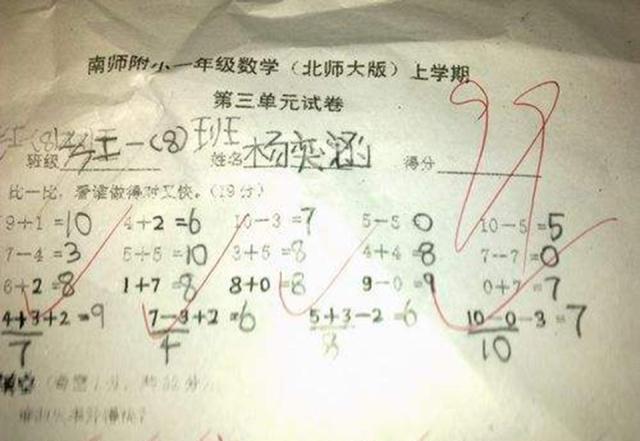 南师附小一年级数学（北师大版）上学期
第三单元试卷
班级 一(8)班 姓名 杨奕涵 得分
比一比，看谁做得对又快。（19分）
9+1=10 4+2=6 10-3=7 5-5 0 10-5=5
7-4=3 5+5=10 3+5=8 4+4=8 7-7=0
6+2=8 1+7=8 8+0=8 9-0=9 0+7=7
4+3+2=9 7-3+2=6 5+3-2=6 10-0-3=7
7 4 8 10